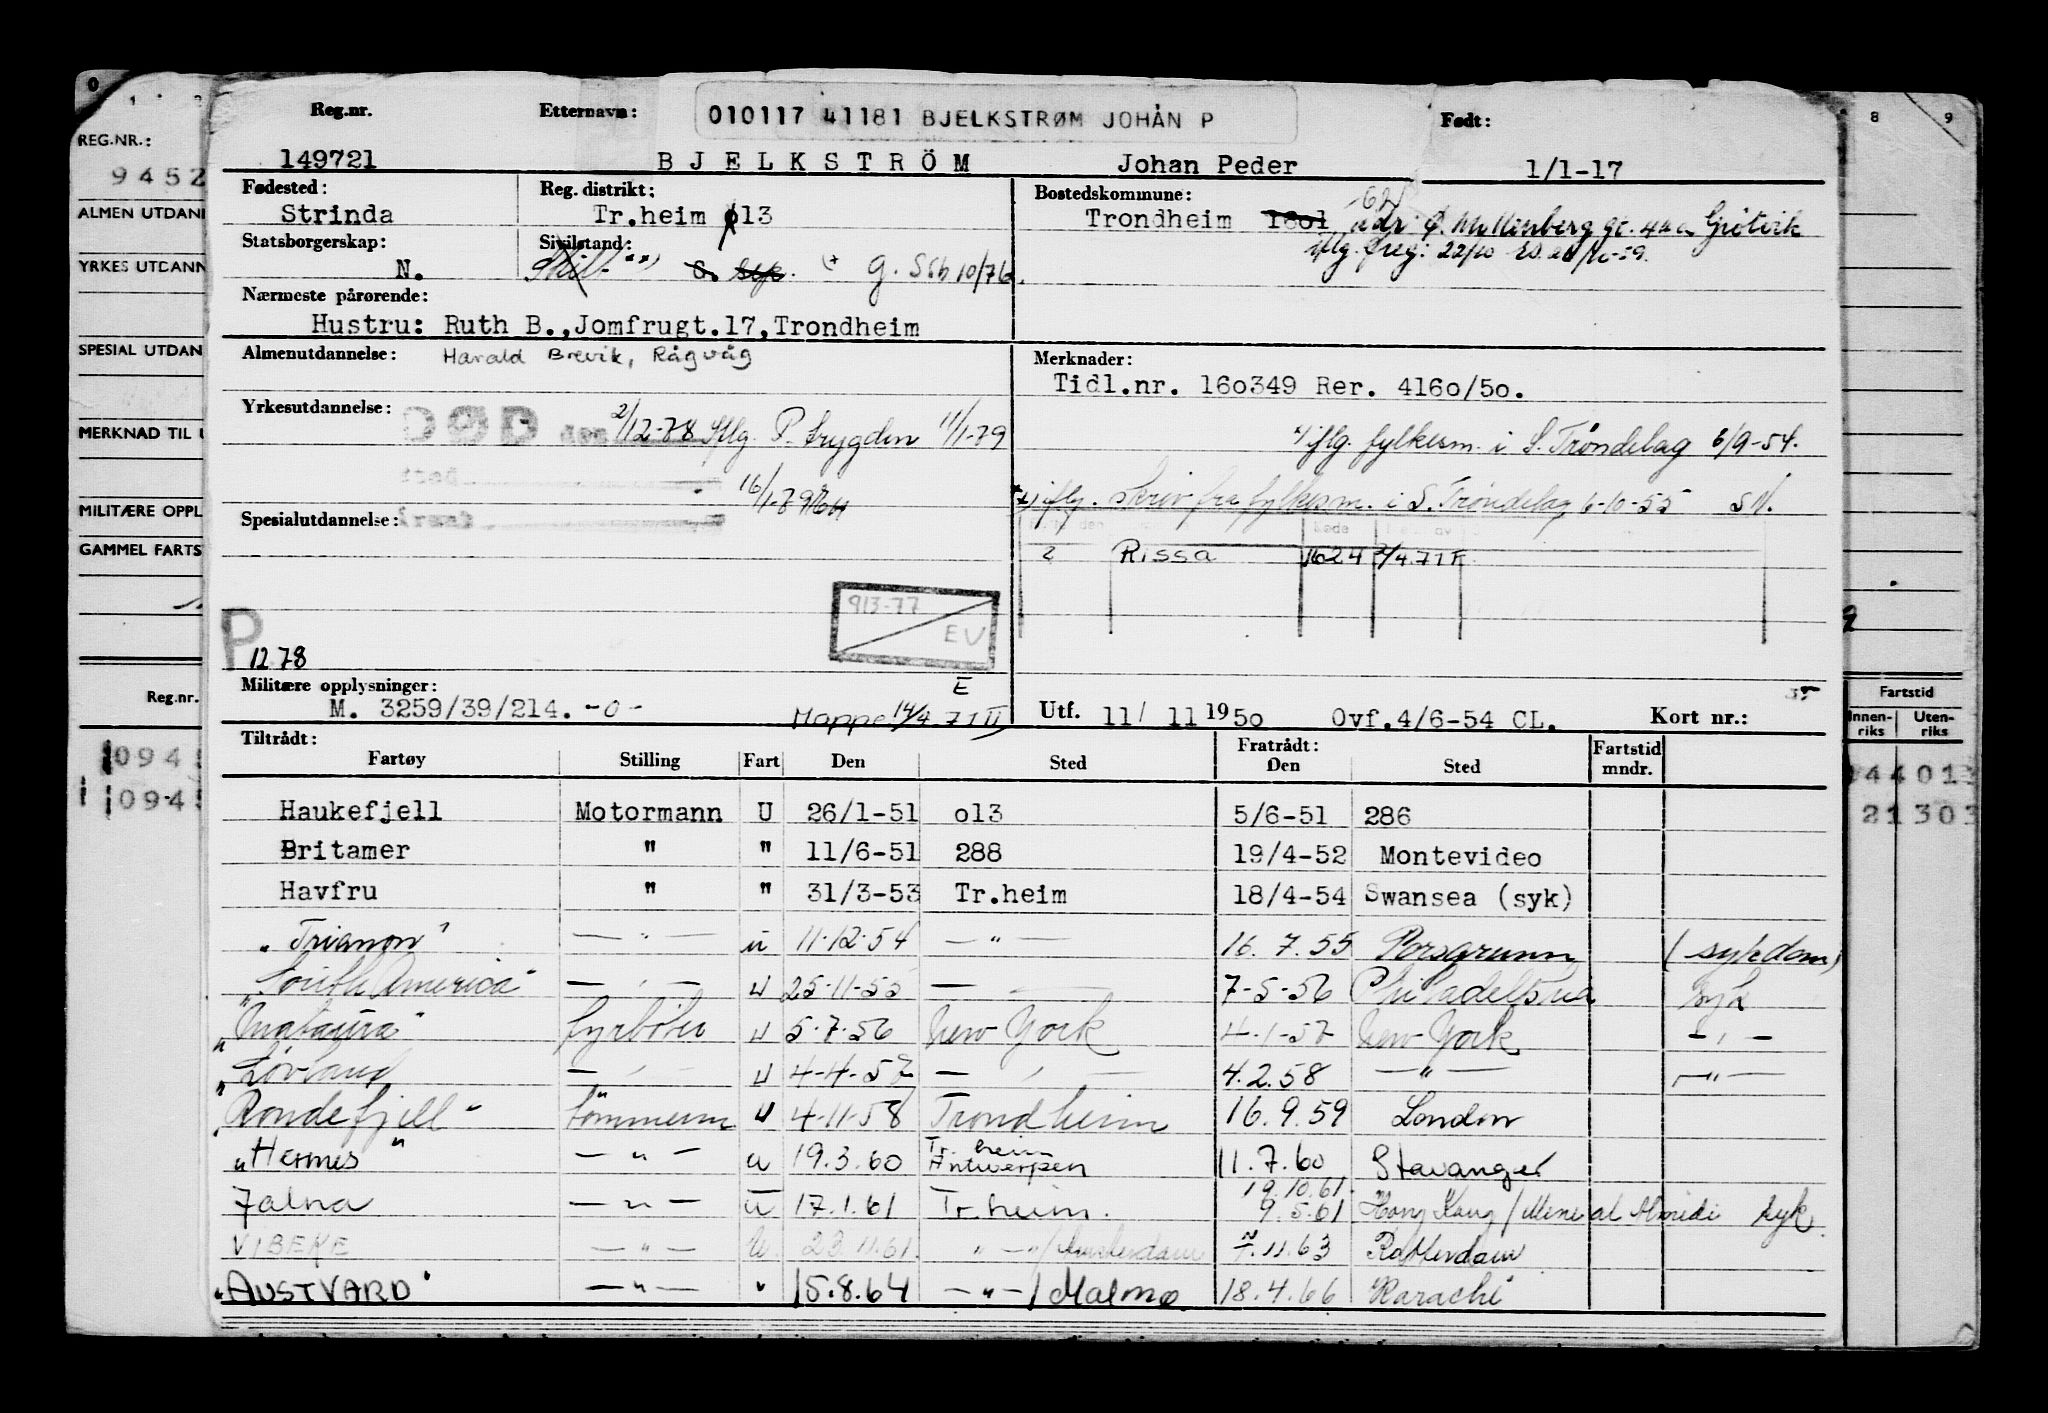 Reg.nr. Etternavn: 010117 41181 BJELKSTRØM JOHÅN P Født:
149721 BJELKSTRÖM Johan Peder 1/1-17
Fødested: Reg. distrikt: Bostedskommune:
Strinda Tr.heim 013 Trondheim 1801
Statsborgerskap: Sivilstand:
N. g. SSb 10/76.
Nærmeste pårørende:
Hustru: Ruth B., Jomfrugt.17, Trondheim
Almenutdannelse: Harald Brevik, Rågvåg Merknader:
Tidl.nr. 160349 Rer. 4160/50.
Yrkesutdannelse: DØD den 2/12-78 iflg. P. trygden 11/1-79
iflg. fylkesm. i S. Trøndelag 6/9-54.
16/1-79
iflg. skriv fra fylkesm. i S. Trøndelag 6-10-55 SN.
Spesialutdannelse:
2 Rissa 1624 2/4.71 F
913-77
EV
P
1278
Militære opplysninger: E
M. 3259/39/214. -o- Mappe 14/4.71 II Utf. 11/ 11 1950 Ovf.4/6-54 CL. Kort nr.:
Tiltrådt: Fratrådt: Fartstid
Fartøy Stilling Fart Den Sted Den Sted mndr.
Haukefjell Motormann U 26/1-51 013 5/6-51 286
Britamer " " 11/6-51 288 19/4-52 Montevideo
Havfru " " 31/3-53 Tr.heim 18/4-54 Swansea (syk)
"Trianon" — " — u 11.12.54 — " — 16.7.55 Porsgrunn (sykdom)
"South America" — " — u 25-11-55 — " — 7-5-56 Philadelphia syk
"Mataura" fyrbøter u 5.7.56 New York 4-1-57 New York — " —
"Lovland — " — u 4-4-57 — " — 4.2.58 — " — — " —
"Rondefjell" tømmerm u 4-11-58 Trondheim 16.9.59 London
"Hermes" — " — u 19.3.60 Tr.heim Antwerpen 11.7.60 Stavanger
19.10.61.
Jalna — " — u 17.1.61 Tr.heim. 9.5.61 Hong Kong / syk.
VIBEKE — " — u. 23.11.61. " — " / Amsterdam 7.11.63 Rotterdam
"AUSTVARD" — " — " 15.8.64 — " — / Malmø 18.4.66 Karachi
0 1
REG.NR.:
9452
ALMEN UTDANN
YRKES UTDANN
SPESIAL UTDAN
MERKNAD TIL U
MILITÆRE OPPL
GAMMEL FARTS
Reg.nr.
0945
0945
8 9
Fartstid
Innen-riks Uten-riks
4401
21303